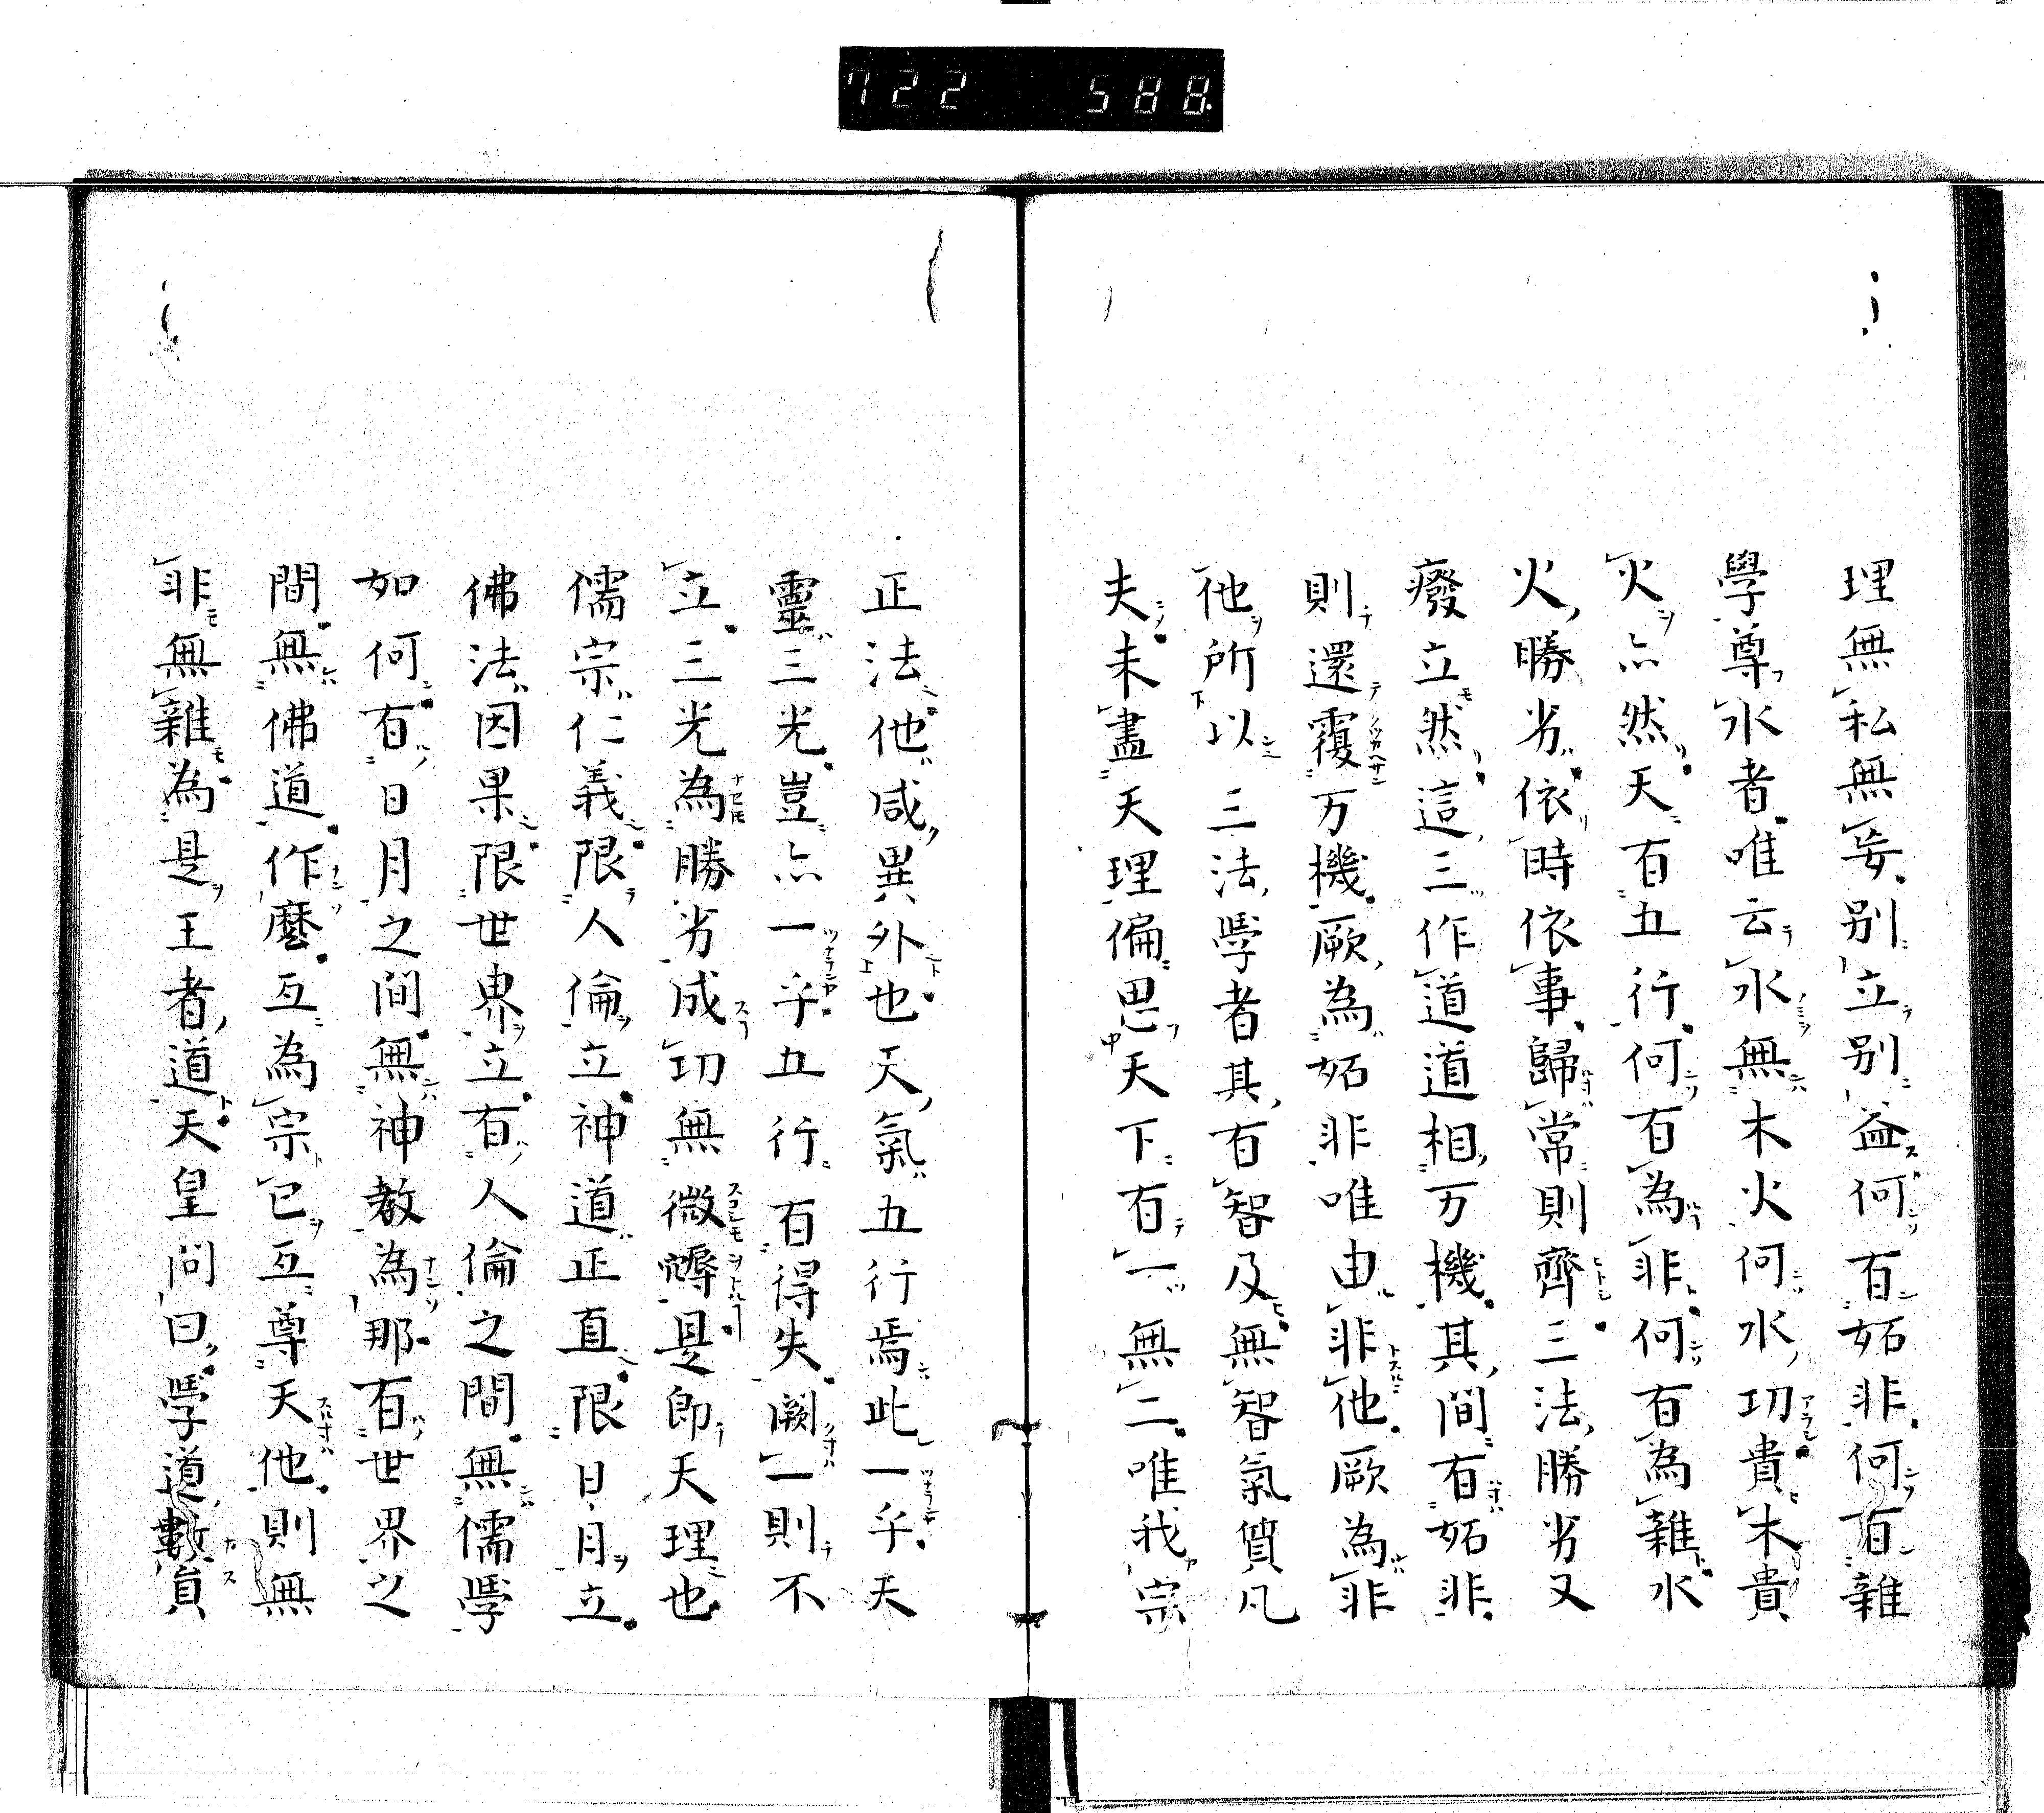 722 588
理無私無妄別立別益何有妬非何有雜
學尊水者唯云水無木火何水功貴木貴
火亦然天有五行何有為非何有為雜水
火勝劣依時依事歸常則齊三法勝劣又
癈立然這三作道道相万機其間有妬非
則還覆万機厥為妬非唯由非他厥為非
他所以三法學者其有智及無智氣質凡
夫未盡天理偏思天下有一無二唯我宗
正法他咸異外也天氣五行焉此一乎天
靈三光豈亦一乎五行有得失闕一則不
立三光為勝劣成功無微是即天理也
儒宗仁義限人倫立神道正直限日月立
佛法因果限世界立有人倫之間無儒學
如何有日月之間無神教為那有世界之
間無佛道作麼互為宗已互尊天他則無
非無雜為是王者道天皇問曰學道數員